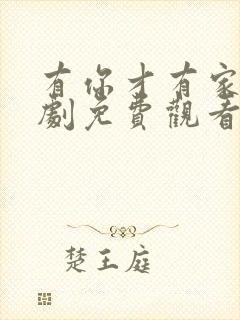 有你才有家
劇免費觀看
楚王庭